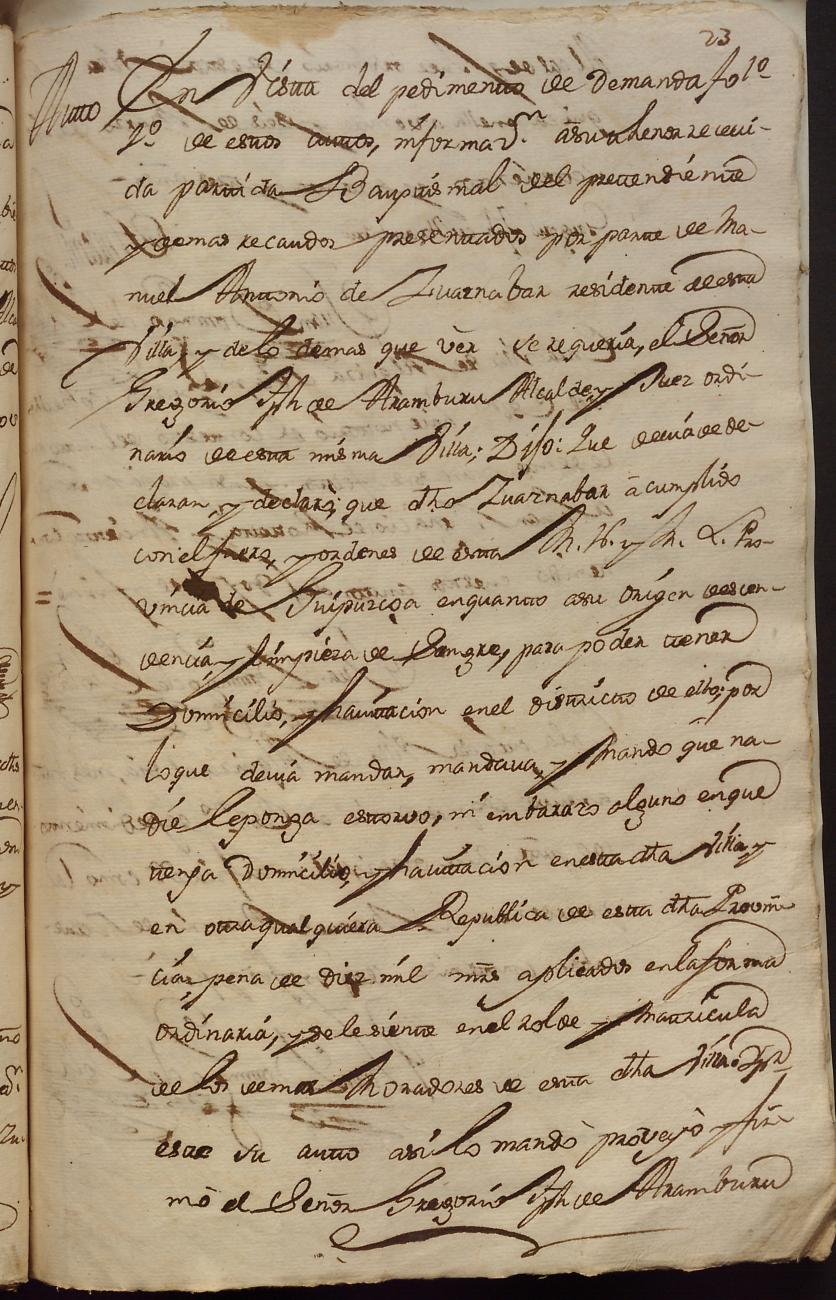 23
Auto En Vista del pedimento de demanda fo 1º
2º de estos autos, informaz.ⁿ a su thenor recevi-
da partida Baptismal del pretendiente
y demas recaudos presentados por parte de Ma-
nuel Antonio de Zuarnabar residente de esta
Villa, y de lo demas que ver se requeria, el Señor
Gregorio Jph de Aramburu Alcalde y Juez ordi-
nario de esta misma Villa; Dijo: Que devia de de-
clarar, y declarò; que dho Zuarnabar à cumplido
con el fuero, y ordenes de esta M. N. y M. L. Pro-
= vincia de Guipuzcoa enquanto asu origen descen-
dencia y limpieza de Sangre, para poder tener
Domicilio, y havitacion en el districto de ella; por
lo que devia mandar, mandava, y Mando que na-
die le ponga estorvo, ni embarazo alguno en que
tenga Domicilio, y havitacion en esta dha Villa, y
en otra qualquiera Republica de esta dha Provin-
cia, pena de diez mil mrs aplicados en la forma
ordinaria, y se le siente en el rolde y Matricula
de los demas Moradores de esta dha Villa: Por
este su auto asi lo mandò proveyò y fir-
mò el Señor Gregorio Jph de Aramburu